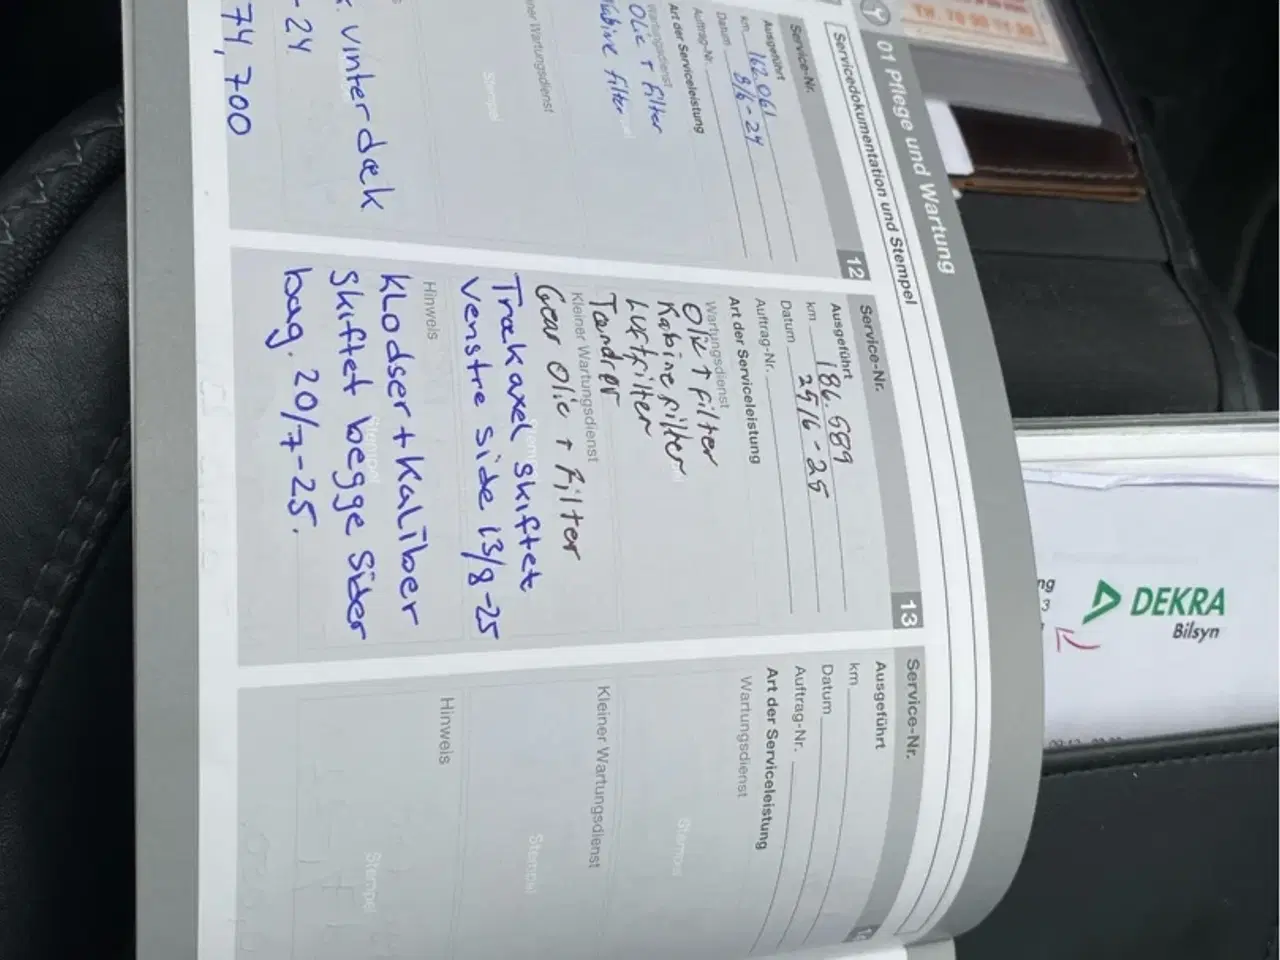 01 Pflege und Wartung
Servicedokumentation und Stempel
Service-Nr.
12
Ausgeführt
km 162.061
Datum 8/6-24
Auftrag-Nr.
Art der Serviceleistung
Wartungsdienst
Olie + filter
Kabine filter
Wartungsdienst
Stempel
vinterdæk
-24
74,700
Service-Nr.
13
Ausgeführt
km 186 589
Datum 29/6-25
Auftrag-Nr.
Art der Serviceleistung
Wartungsdienst
Olie + filter
Kabine filter
Luftfilter
Tændrør
Kleiner Wartungsdienst
Gear olie + filter
Trækaxel skiftet
venstre side 13/8-25
Stempel
Hinweis
Klodser + Kaliber
skiftet begge sider
bag. 20/7-25.
Stempel
Service-Nr.
Ausgeführt
km
Datum
Auftrag-Nr.
Art der Serviceleistung
Wartungsdienst
Stempel
Kleiner Wartungsdienst
Stempel
Hinweis
Stempel
DEKRA
Bilsyn
ng
3